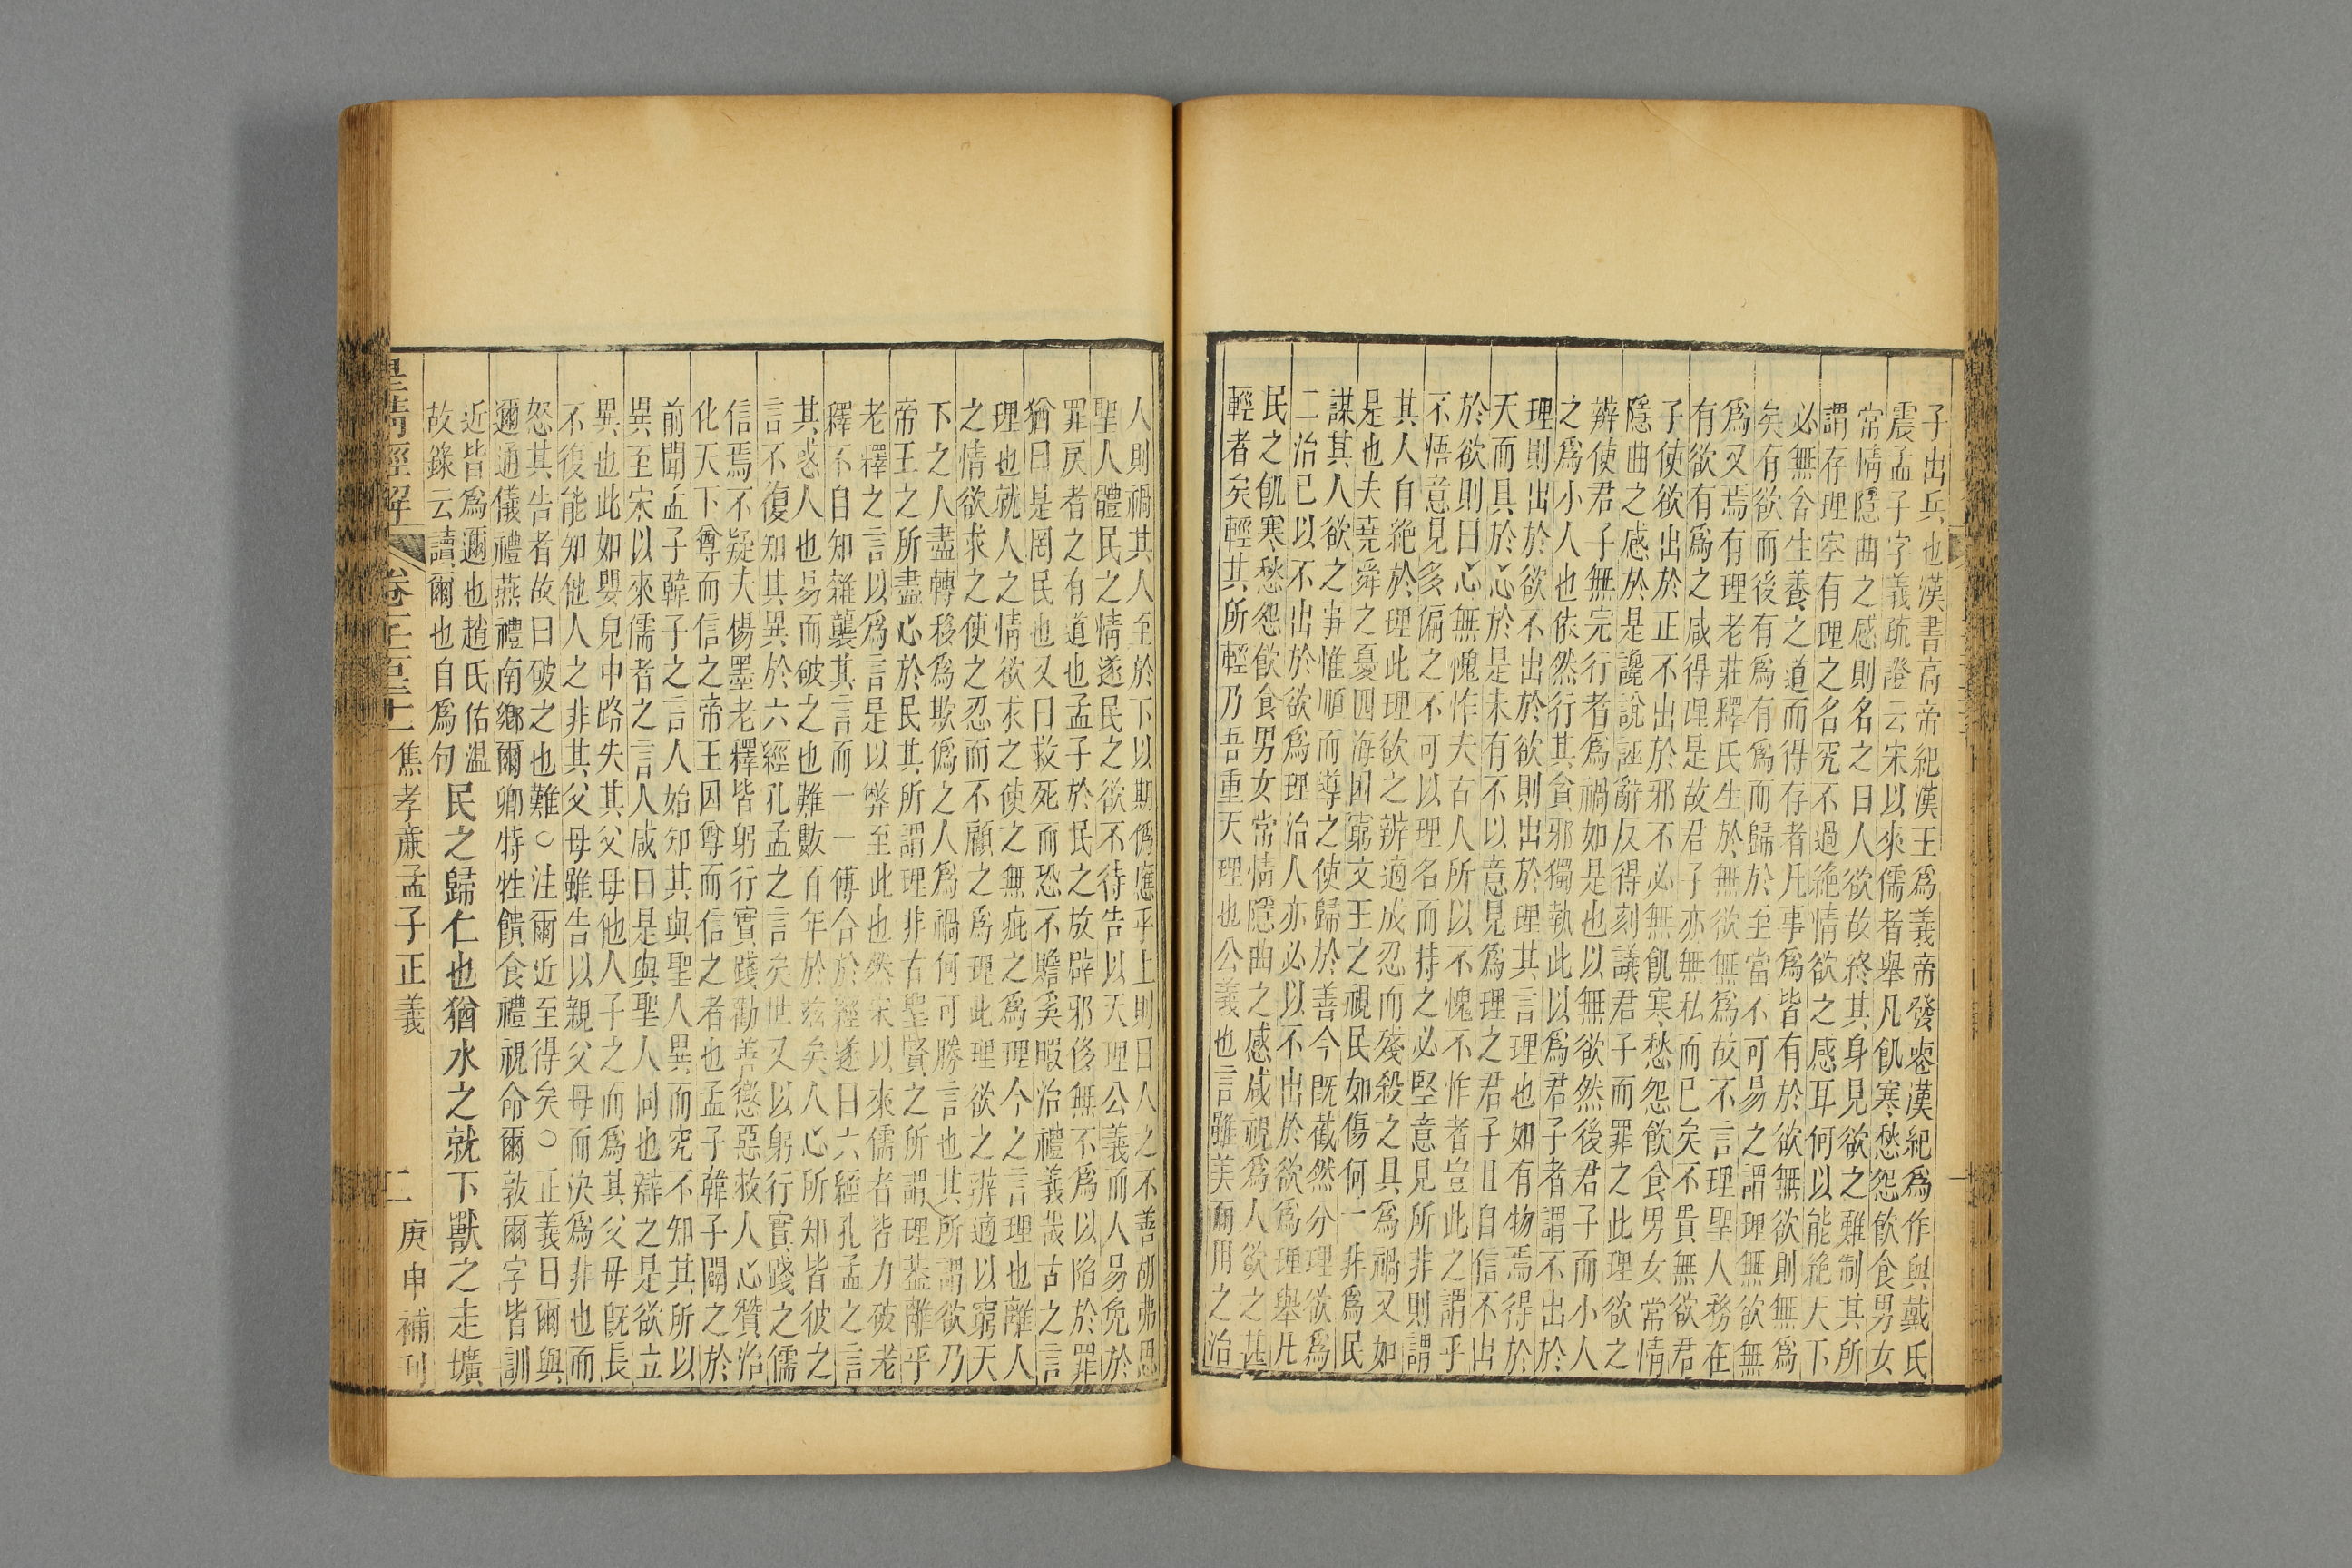 子出兵也漢書高帝紀漢王爲義帝發喪漢紀爲作與戴氏
震孟子字義疏證云宋以來儒者舉凡飢寒愁怨飲食男女
常情隱曲之感則名之曰人欲故終其身見欲之難制其所
謂存理空有理之名究不過絕情欲之感耳何以能絕天下
必無舍生養之道而得存者凡事爲皆有於欲無欲則無爲
矣有欲而後有爲有爲而歸於至當不可易之謂理無欲無
爲又焉有理老莊釋氏生於無欲無爲故不言理聖人務在
有欲有爲之咸得理是故君子亦無私而已矣不貴無欲君
子使欲出於正不出於邪不必無飢寒愁怨飲食男女常情
隱曲之感於是讒說誣辭反得刻議君子而罪之此理欲之
辨使君子無完行者爲禍如是也以無欲然後君子而小人
之爲小人也依然行其貪邪獨執此以爲君子者謂不出於
理則出於欲不出於欲則出於理其言理也如有物焉得於
天而具於心於是未有不以意見爲理之君子且自信不出
於欲則曰心無愧怍夫古人所以不愧不怍者豈此之謂乎
不悟意見多偏之不可以理名而持之必堅意見所非則謂
其人自絕於理此理欲之辨適成忍而殘殺之具爲禍又如
是也夫堯舜之憂四海困窮文王之視民如傷何一非爲民
謀其人欲之事惟順而導之使歸於善今既截然分理欲爲
二治已以不出於欲爲理治人亦必以不出於欲爲理舉凡
民之飢寒愁怨飲食男女常情隱曲之感咸視爲人欲之甚
輕者矣輕其所輕乃吾重天理也公義也言雖美而用之治
人則禍其人至於下以期僞應乎上則曰人之不善胡弗思
聖人體民之情遂民之欲不待告以天理公義而人易免於
罪戾者之有道也孟子於民之放辟邪侈無不爲以陷於罪
猶曰是罔民也又曰救死而恐不贍奚暇治禮義哉古之言
理也就人之情欲求之使之無疵之爲理今之言理也離人
之情欲求之使之忍而不顧之爲理此理欲之辨適以窮天
下之人盡轉移爲欺僞之人爲禍何可勝言也其所謂欲乃
帝王之所盡心於民其所謂理非古聖賢之所謂理蓋離乎
老釋之言以爲言是以弊至此也然宋以來儒者皆力破老
釋不自知雜襲其言而一一傅合於經遂曰六經孔孟之言
其惑人也易而破之也難數百年於茲矣人心所知皆彼之
言不復知其異於六經孔孟之言矣世又以躬行實踐之儒
信焉不疑夫楊墨老釋皆躬行實踐勸善懲惡救人心贊治
化天下尊而信之帝王因尊而信之者也孟子韓子闢之於
前聞孟子韓子之言人始知其與聖人異而究不知其所以
異至宋以來儒者之言人咸曰是與聖人同也辯之是欲立
異也此如嬰兒中路失其父母他人子之而爲其父母既長
不復能知他人之非其父母雖告以親父母而決爲非也而
怒其告者故曰破之也難○注爾近至得矣○正義曰爾與
邇通儀禮燕禮南鄉爾卿特牲饋食禮視命爾敦爾字皆訓
近皆爲邇也趙氏佑温
故錄云讀爾也自爲句
民之歸仁也猶水之就下獸之走壙
皇清經解
焦孝廉孟子正義
二
庚申補刊